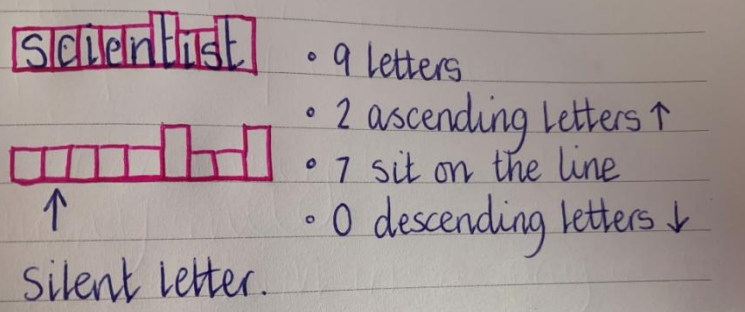 scientist
• 9 letters
• 2 ascending letters ↑
• 7 sit on the line
↑
• 0 descending letters ↓
Silent letter.